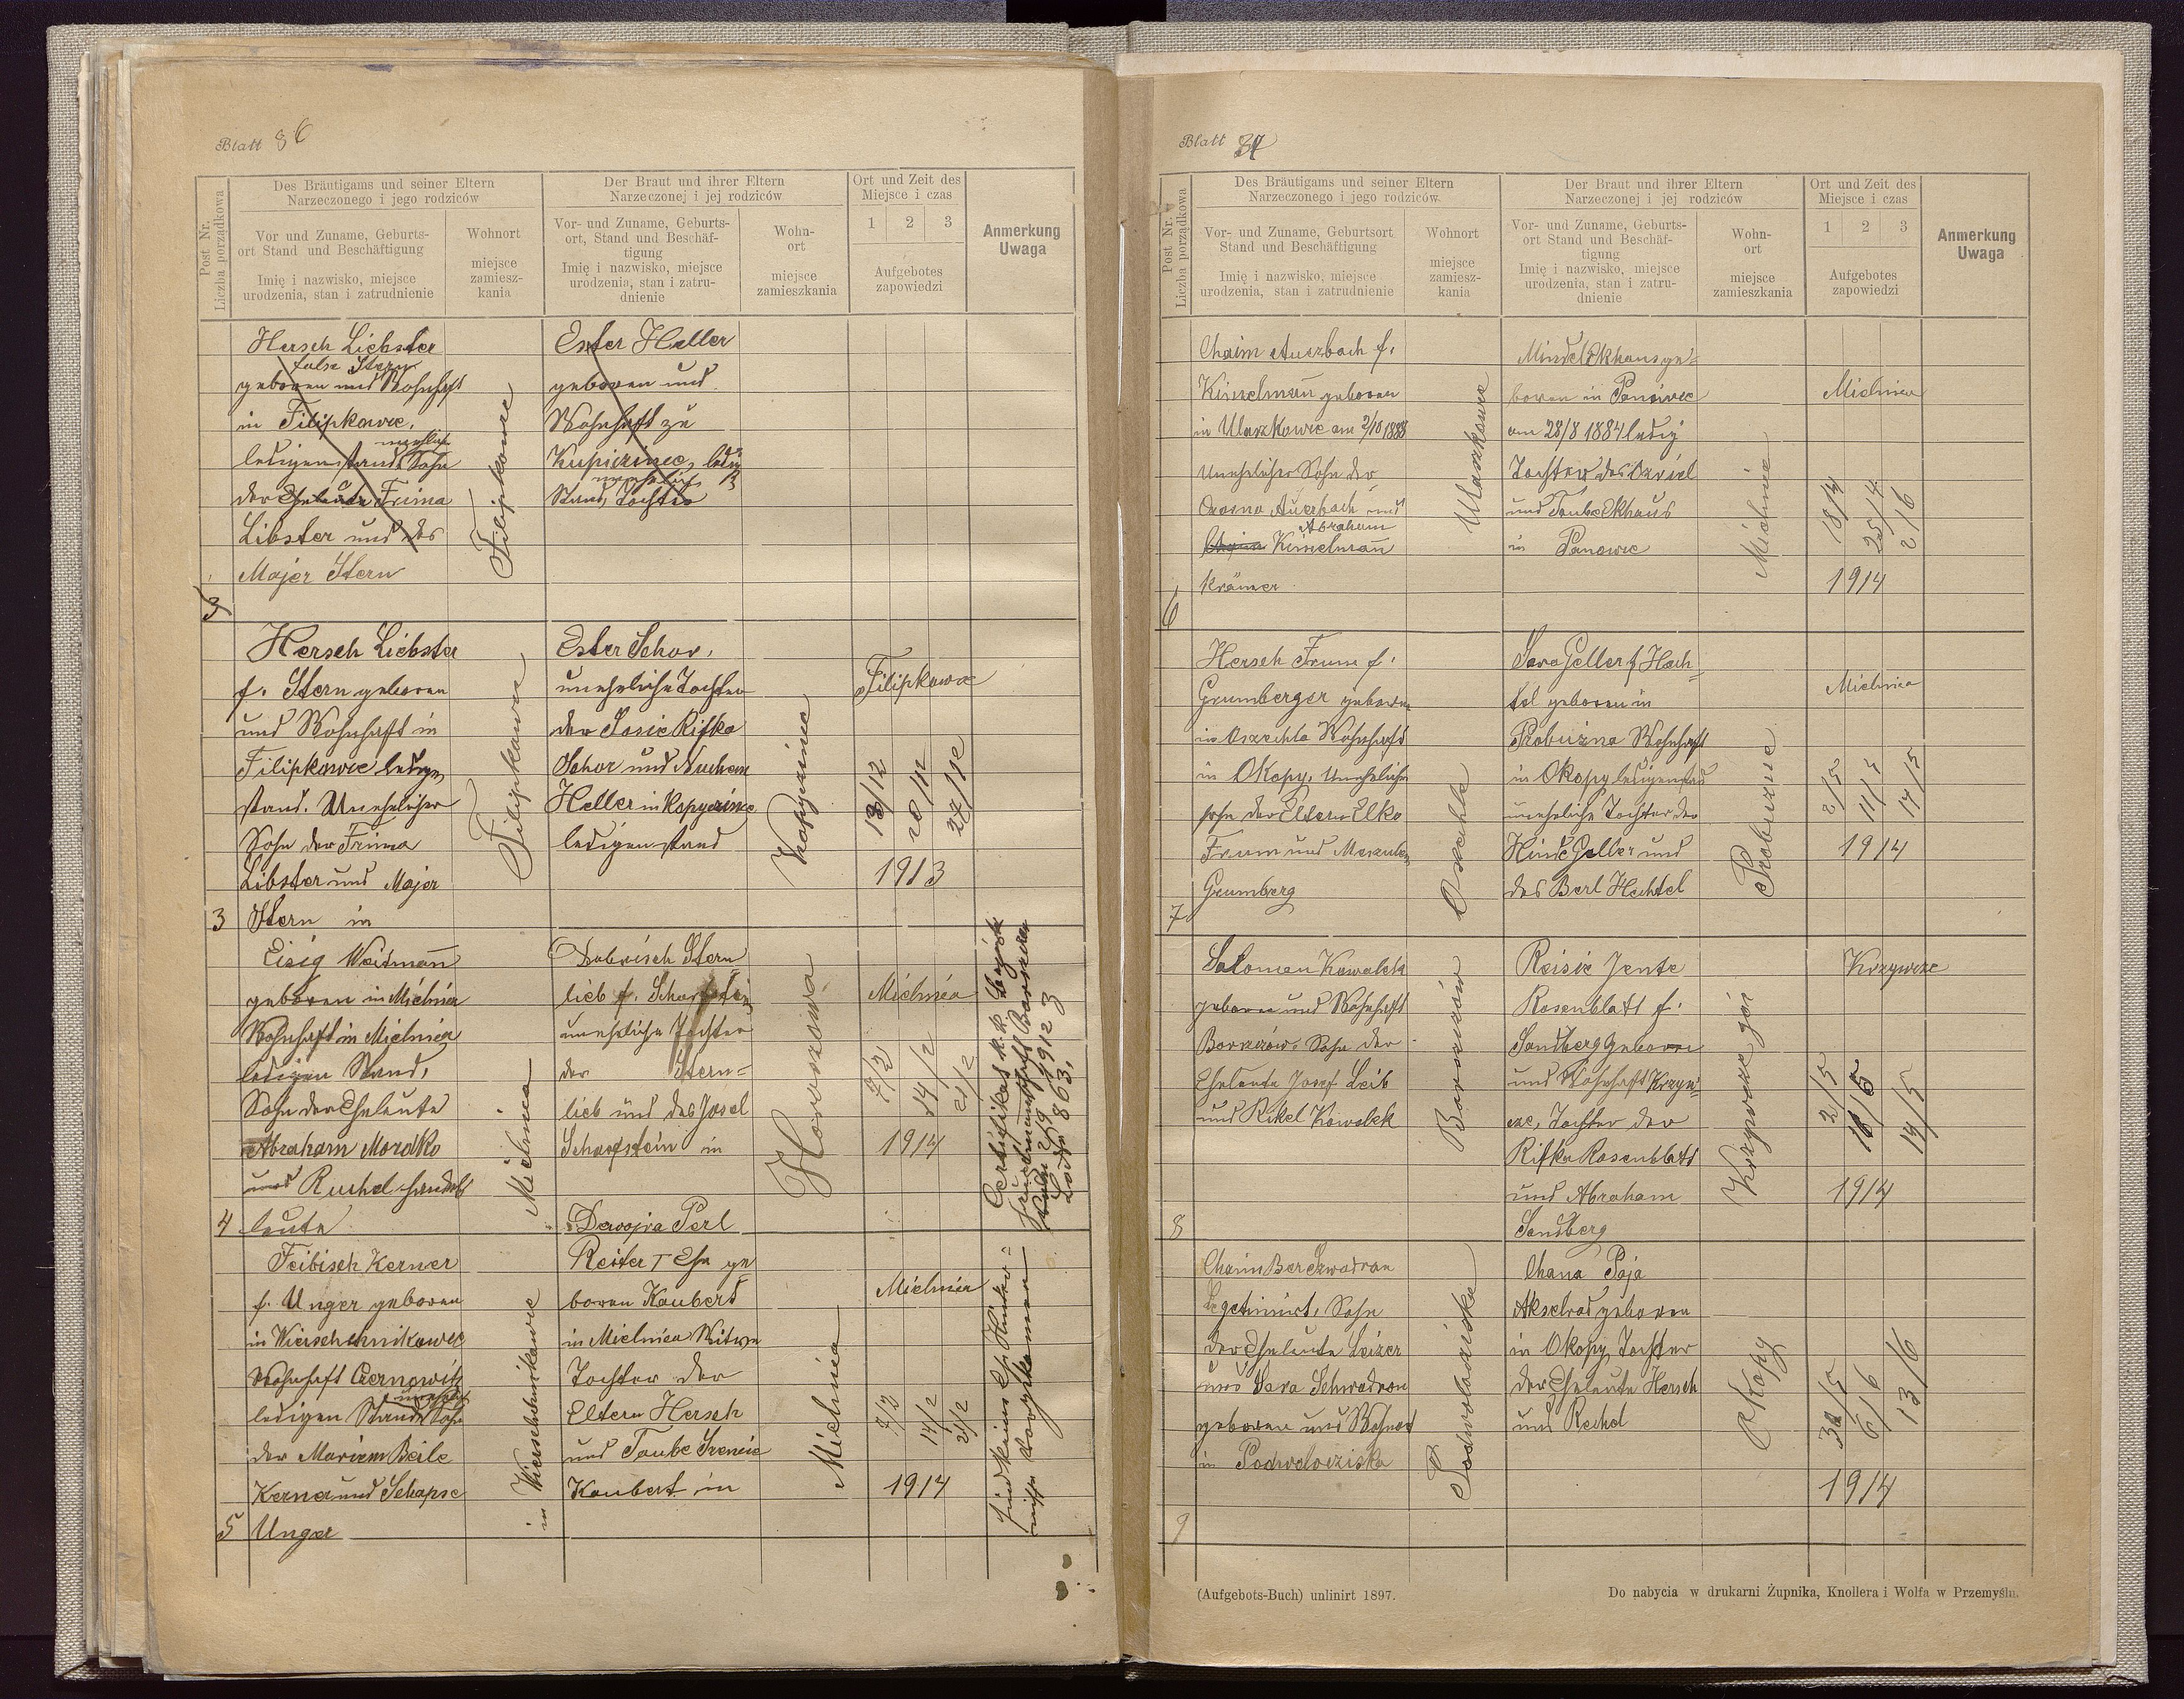 Blatt 86
Post Nr.
Liczba porządkowa
Des Bräutigams und seiner Eltern
Narzeczonego i jego rodziców
Vor und Zuname, Geburts-
ort Stand und Beschäftigung
Imię i nazwisko, miejsce
urodzenia, stan i zatrudnienie
Wohnort
miejsce
zamiesz-
kania
Der Braut und ihrer Eltern
Narzeczonej i jej rodziców
Vor- und Zuname, Geburts-
ort, Stand und Beschäf-
tigung
Imię i nazwisko, miejsce
urodzenia, stan i zatru-
dnienie
Wohn-
ort
miejsce
zamieszkania
Ort und Zeit des
Miejsce i czas
1 2 3
Aufgebotes
zapowiedzi
Anmerkung
Uwaga
3
Hersch Liebster
false Stern
geboren und Wohnhaft
in Filipkowce,
unehlich
ledigen stands Sohn
der Eheleute Frima
Libster und des
Majer Stern
Filipkowce
Ester Heller
geboren und
Wohnhaft zu
Kupiczinec, ledig
unehliche
Stand Tochter
3
Hersch Liebster
f. Stern geboren
und Wohnhaft in
Filipkowce ledigen
stand. Unehelicher
Sohn der Frima
Libster und Majer
Stern in
Filipkowce
Ester Schor,
uneheliche Tochter
der Sosie Rifka
Schor und Nuchem
Heller in Kopyczince
ledigen stand
Kopyczince
Filipkowce
13/12
20/12
27/12
1913
4
Eisig Weidmann
geboren in Mielnica
Wohnhaft in Mielnica
ledigen Stand,
Sohn der Eheleute
Abraham Mordko
und Ruchel handels
leute
Mielnica
Dobrisch Stern
lieb f. Scharfstein
uneheliche Tochter
der Stern-
lieb und des Josel
Scharfstein in
Horoszowa
Mielnica
7/2
14/2
21/2
1914
Certifikat k. k. Bezirks
hauptmannschaft Borszczow
29/9 1912
863,
5
Feibisch Kerner
f. Unger geboren
in Wierschchnikowce
Wohnhaft Czernowitz
unehelich
ledigen Stands Sohn
der Mariem Beile
Kerner und Schapse
Unger
in Wierschchnikowce
Dewojra Perl
Reiter T Ehe ge
boren Koubert
in Mielnica Witwe
Tochter der
Eltern Hersch
und Taube Irencie
Koubert in
Mielnica
Mielnica
7/2
14/2
21/2
1914
Blatt 87
Post Nr.
Liczba porządkowa
Des Bräutigams und seiner Eltern
Narzeczonego i jego rodziców.
Vor- und Zuname, Geburtsort
Stand und Beschäftigung
Imię i nazwisko, miejsce
urodzenia, stan i zatrudnienie
Wohnort
miejsce
zamiesz-
kania
Der Braut und ihrer Eltern
Narzeczonej i jej rodziców
Vor- und Zuname, Geburts-
ort Stand und Beschäf-
tigung
Imię i nazwisko, miejsce
urodzenia, stan i zatru-
dnienie
Wohn-
ort
miejsce
zamieszkania
Ort und Zeit des
Miejsce i czas
1 2 3
Aufgebotes
zapowiedzi
Anmerkung
Uwaga
6
Chaim Auerbach f.
Kimelman geboren
in Ulaszkowce am 2/10 1888
Unehelicher Sohn der
Auerbach und
Abraham
Chaim Kimelmann
Krämer
Ulaszkowce
Mindel Ekhaus ge-
boren in Panowce
am 28/8 1884 ledig
Tochter des Azriel
und Taube Ekhaus
in Panowce
Mielnica
Mielnica
18/4
25/4
2/6
1914
7
Hersch Frum f.
Grumberger geboren
in Oszechlo Wohnhaft
in Okopy, Unehelicher
sohn der Eltern Elko
Frum und Meszulem
Grumberg
Oszechlo
Sara Geller f Hech-
tel geboren in
Probuzna Wohnhaft
in Okopy ledigenstand
uneheliche Tochter der
Hinde Geller und
des Berl Hechtel
Probuzna
Mielnica
2/5
11/5
14/5
1914
8
Salomon Kowalek
geboren und Wohnhaft
Borszczów. Sohn der
Eheleute Josef Leib
und Rikel Kowalek
Borszczów
Reisie Jente
Rosenblatt f.
Sandberg geboren
und Wohnhaft Krzyw-
cze, Tochter der
Rifka Rosenblatt
und Abraham
Sandberg
Krzywcze gór
Krzywcze
2/5
16/5
14/5
1914
9
Chaim Ber Szwadron
Legetimirt, Sohn
der Eheleute Leizer
und Sara Schwadron
geboren und Wohnort
in Podwoloczisko
Podwoloczisko
Chana Paja
Akselrad geboren
in Okopy Tochter
der Eheleute Hersch
und Rechel
Okopy
30/5
6/6
13/6
1914
(Aufgebots-Buch) unlinirt 1897.
Do nabycia w drukarni Żupnika, Knollera i Wolfa w Przemyślu.